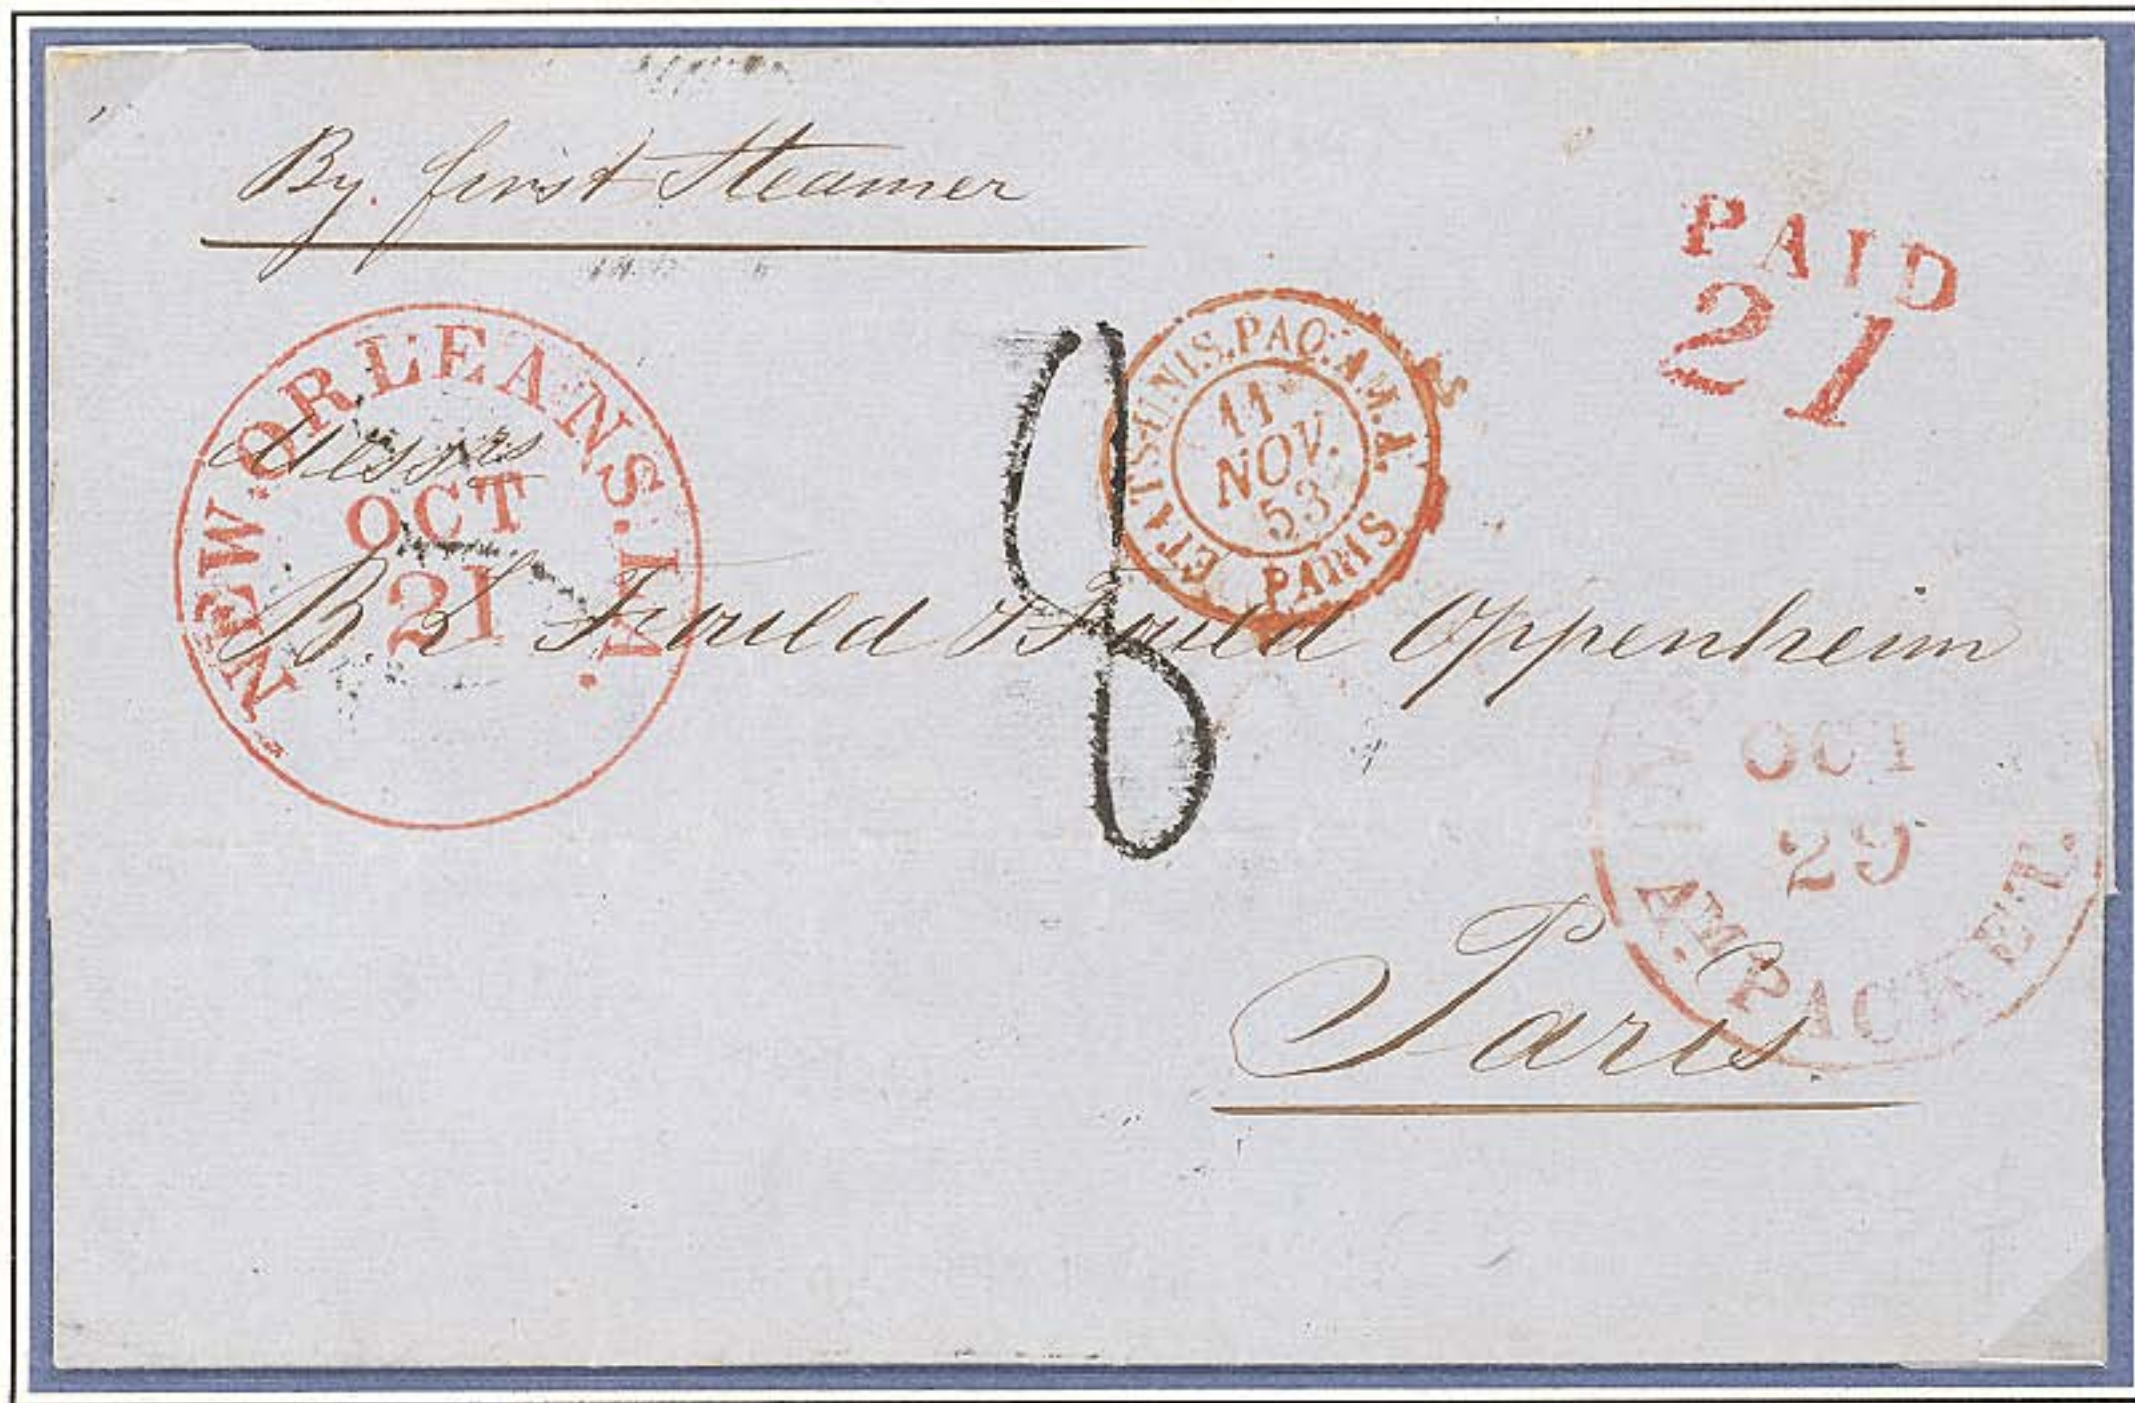 By. first Steamer
PAID
21
NEW.ORLEANS.LA.
OCT
21
ETATS-UNIS.PAQ.AM.A.
11
NOV.
53
PARIS
8
Messrs
B L Fould & Fould Oppenheim
OCT
29
AM. PACKET.
Paris.